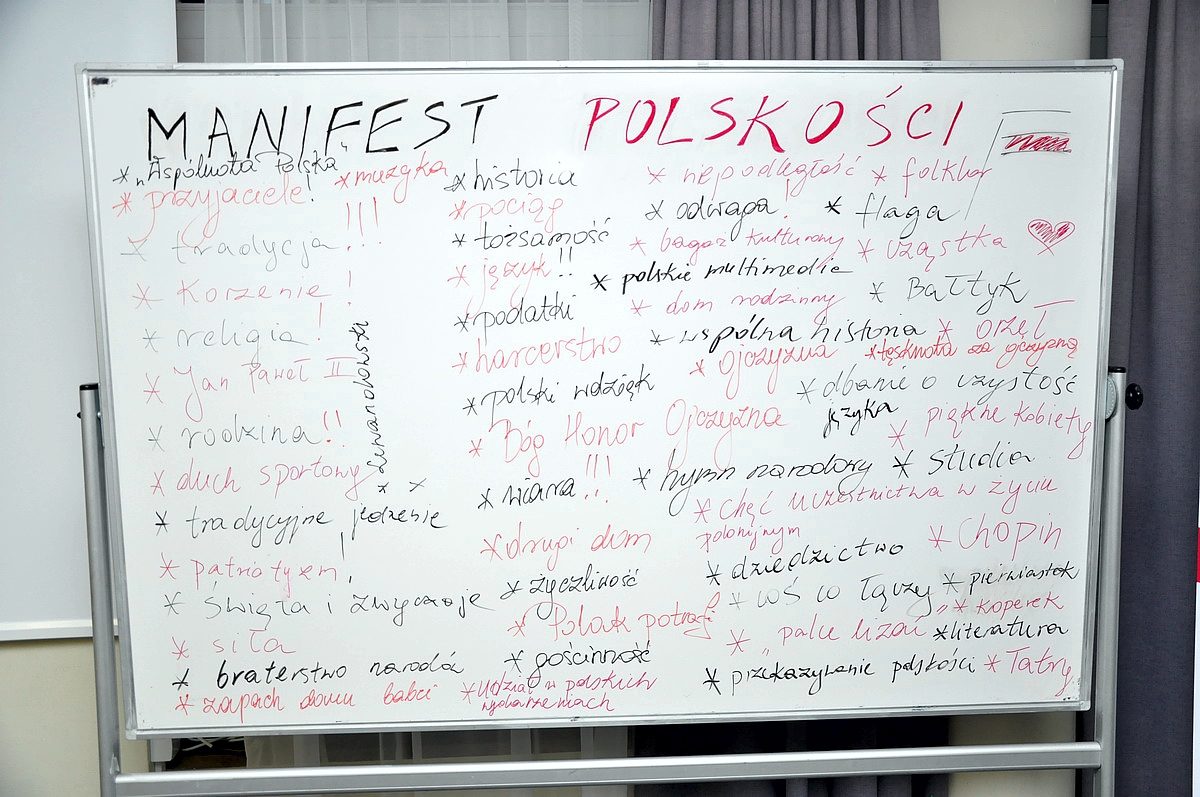 MANIFEST POLSKOŚCI
* „Wspólnota Polska"
* przyjaciele!
* muzyka
* tradycja!!!
* Korzenie!
* religia!
* Jan Paweł II
* Lewandowski
* rodzina!!
* duch sportowy
* tradycyjne jedzenie
* patriotyzm!
* święta i zwyczaje
* siła
* braterstwo narodó
* zapach domu babci
* historia
* pociąg
* tożsamość
* język!!
* podatki
* harcerstwo
* polski wdzięk
* Bóg Honor Ojczyzna
* wiara!!!
* drugi dom
* życzliwość
* Polak potrafi
* gościnność
* Udział w polskich
wydarzeniach
* niepodległość
* folklor
* odwaga!
* flaga
* bagaż kulturowy
* cząstka
* polskie multimedia
* dom rodzinny
* Bałtyk
* wspólna historia
* orzeł
* ojczyzna
* tęsknota za ojczyzną
* dbanie o czystość
języka
* piękne kobiety
* hymn narodowy
* studia
* chęć uczestnictwa w życiu
polonijnym
* dziedzictwo
* Chopin
* coś co łączy
* pierwiastek
* „palce lizać"
* koperek
* literatura
* przekazywanie polskości
* Tatry